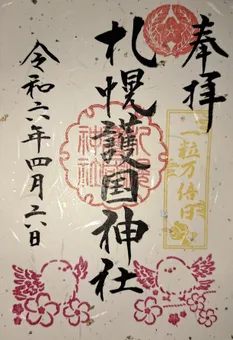 奉拝
一粒万倍日
札幌護国神社
令和六年四月二六日